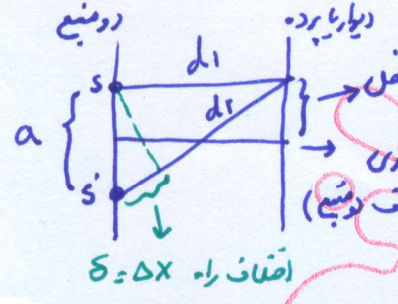 دو منبع
دیوار یا پرده
S
d1
d2
a
S'
(دو منبع)
δ = Δx اختلاف راه